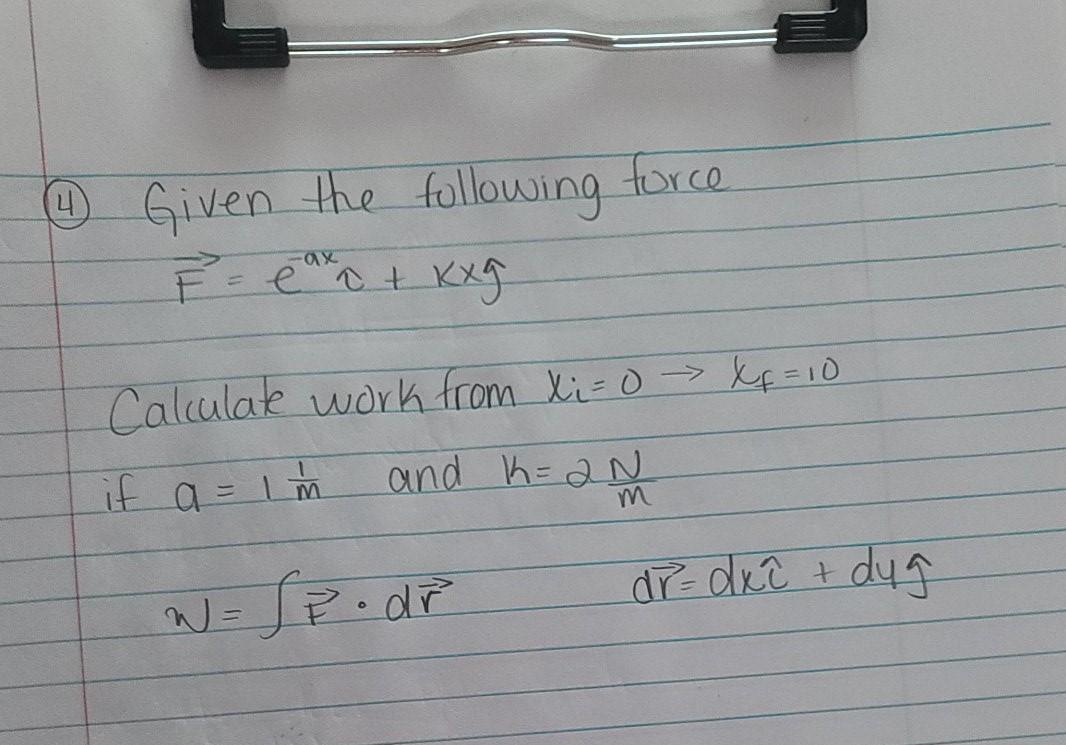 ④ Given the following force
F⃗ = e^{-ax} î + kxĵ
Calculate work from xᵢ = 0 → x_f = 10
if a = 1 1/m and k = 2 N/m
W = ∫ F⃗ • dr⃗ dr⃗ = dxî + dyĵ